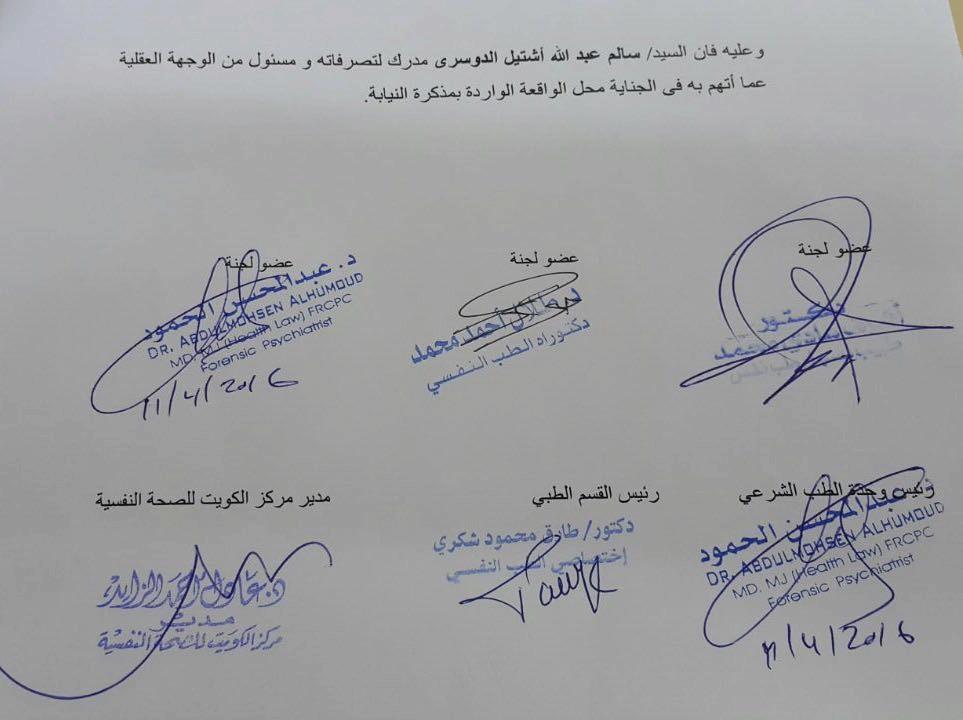 وعليه فان السيد/ سالم عبد الله أشتيل الدوسرى مدرك لتصرفاته و مسئول من الوجهة العقلية
عما أتهم به فى الجناية محل الواقعة الواردة بمذكرة النيابة.
عضو لجنة
دكتور
عضو لجنة
أحمد محمد
دكتوراه الطب النفسي
عضو لجنة
د. عبدالمحسن الحمود
DR. ABDULMOHSEN ALHUMOUD
MD. MJ (Health Law) FRCPC
Forensic Psychiatrist
11/4/2016
رئيس وحدة الطب الشرعي
د. عبدالمحسن الحمود
DR. ABDULMOHSEN ALHUMOUD
MD. MJ (Health Law) FRCPC
Forensic Psychiatrist
11/4/2016
رئيس القسم الطبي
دكتور/ طارق محمود شكري
إختصاصي الطب النفسي
مدير مركز الكويت للصحة النفسية
د. عادل احمد الزايد
مدير
مركز الكويت للصحة النفسية